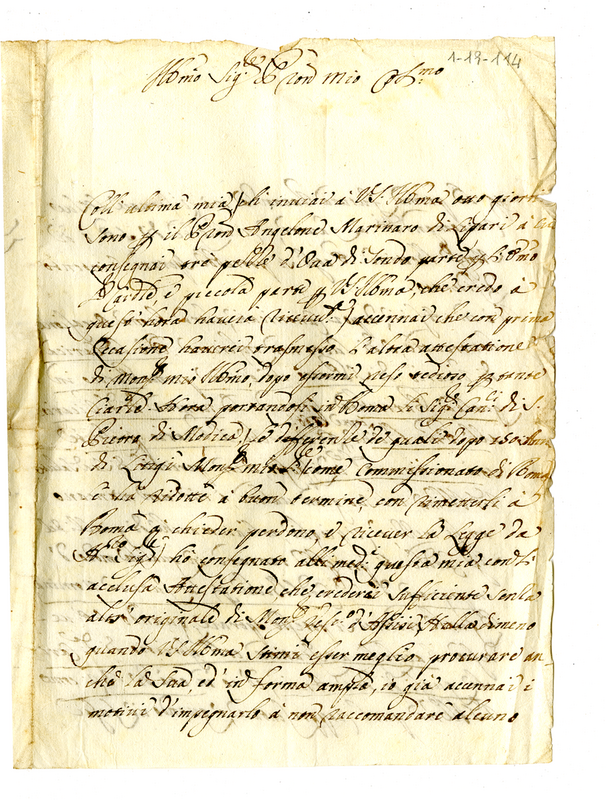 1-13-114
Illmo Sig.re e Pron mio Col.mo
Coll'ultima mia, che inviai à V.S. Illma otto giorni
sono p il Pron Angelone Marinaro di Lipari à cui
consegnai tre pelle d'Ova di Tonno parte p l'Emo
e piccola parte p V.S. Illma, che credo à
quest'hora haverà ricevut accennai che con prima
occasione haverei trasmesso l'altra attestatione
di Mons.r mio Illmo, dopo
Hora portandosi in Roma li Sig.ri Can.ci di S.
di Modica, le differenze de quali dopo 150 Anni
di Litigi Mons.r mio Ill come Commissionato di Roma
hà ridotte à buon termine, con rimettersi à
Roma à chieder perdono, e ricever la Legge da
ho consegnato alli med.i questa mia con l'
acclusa Attestatione che crederei sufficiente senza
altr' originale di Mons.r Vesc.o d'Assisi, Nulla dimeno
quando V.S. Illma stimi esser meglio procurare an
che la sua, ed in forma ampla, io già accennai i
motivi d'impegnarlo à non raccomandare alcuno